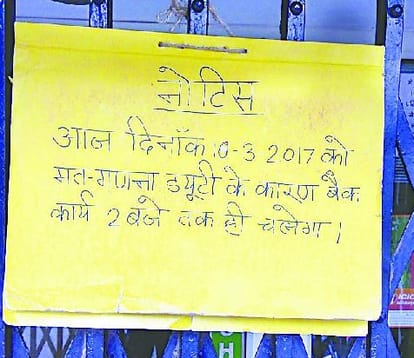 नोटिस
आज दिनाँक 10-3 2017 को
मत-गणना ड्यूटी के कारण बैंक
कार्य 2 बजे तक ही चलेगा।
ICIC
H